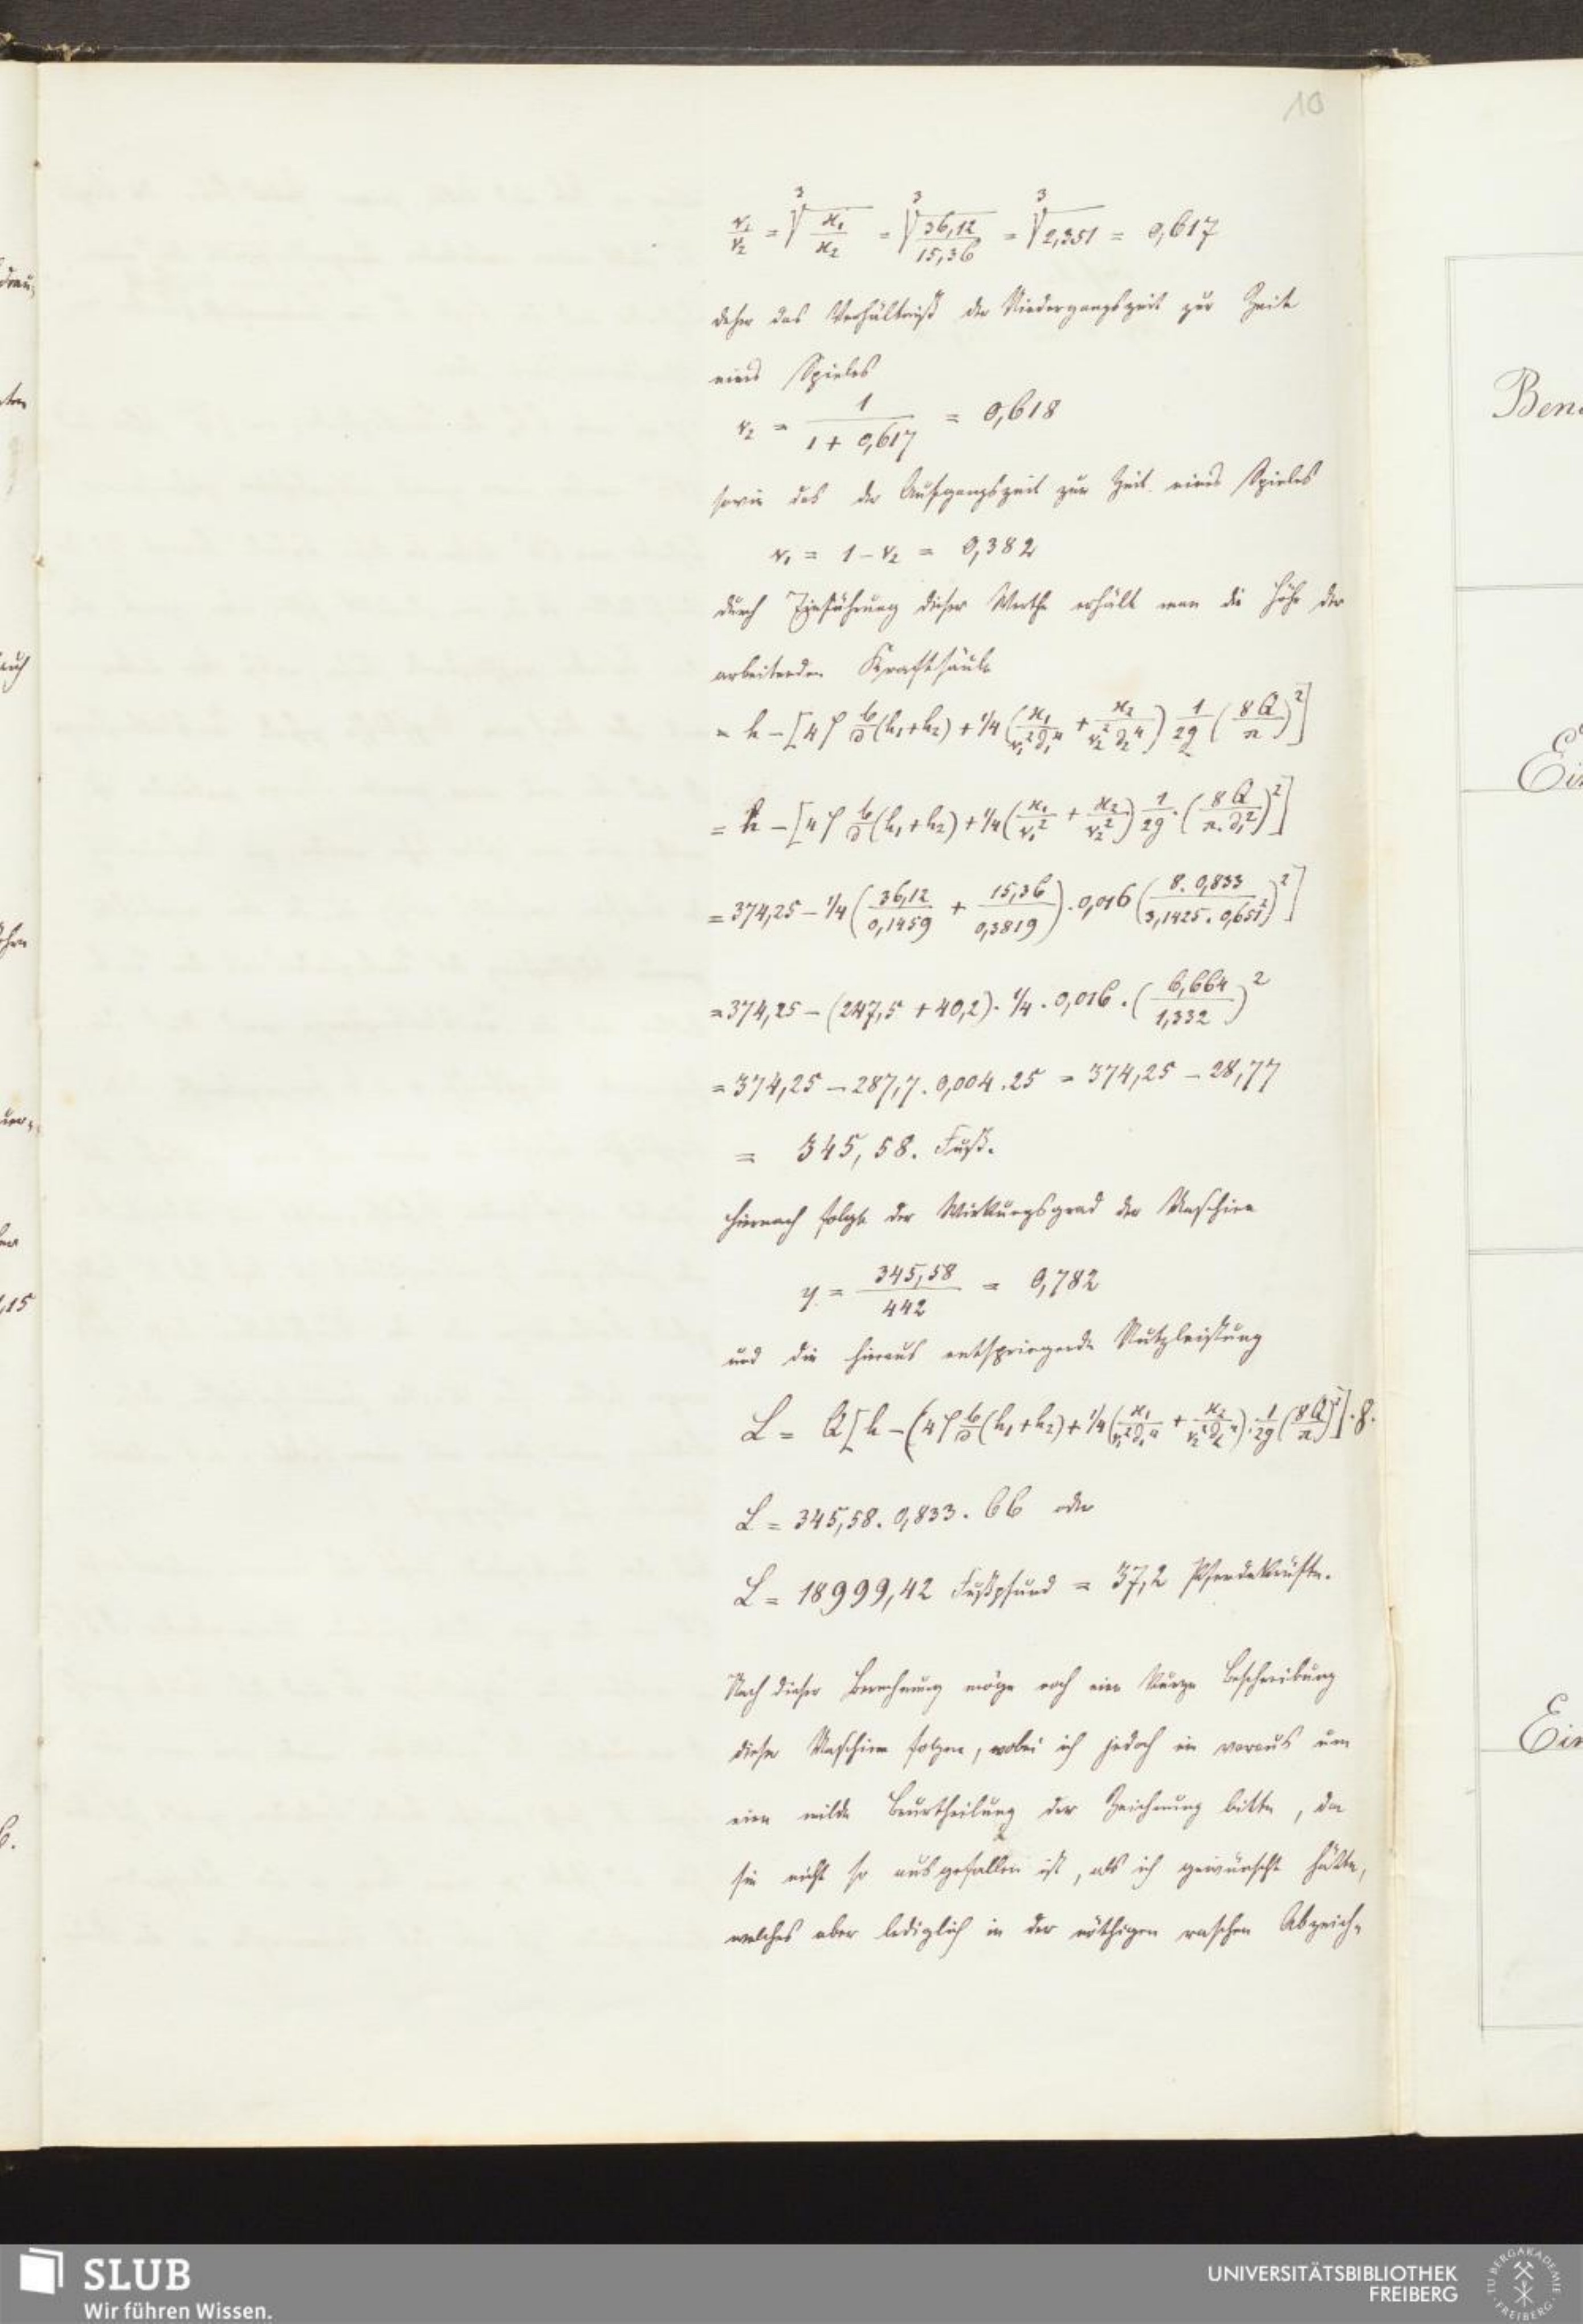 10
ν₁/ν₂ = ∛(ϰ₁/ϰ₂) = ∛(36,12/15,36) = ∛2,351 = 0,617
daher das Verhältniß der Niedergangszeit zur Zeit
eines Spieles
ν₂ = 1/(1 + 0,617) = 0,618
sowie das der Aufgangszeit zur Zeit eines Spieles
ν₁ = 1 – ν₂ = 0,382
durch Einführung dieser Werthe erhält man die Höhe der
arbeitenden Kraftsäule
= h – [4 φ b/∂ (h₁+h₂) + 1/4 (ϰ₁/(ν₁²∂₁⁴) + ϰ₂/(ν₂²∂₂⁴)) 1/2g (8Q/π)²]
= h – [4 φ b/∂ (h₁+h₂) + 1/4 (ϰ₁/ν₁² + ϰ₂/ν₂²) 1/2g · (8Q/(π.∂₁²))²]
= 374,25 – 1/4 (36,12/0,1459 + 15,36/0,3819) . 0,016 (8. 0,833/(3,1425 . 0,651²))²]
= 374,25 – (247,5 + 40,2) . 1/4 . 0,016 . (6,664/1,332)²
= 374,25 – 287,7 . 0,004 . 25 = 374,25 – 28,77
= 345,58. Fuß.
hiernach folgt der Wirkungsgrad der Maschine
η = 345,58/442 = 0,782
und die hieraus entspringende Nutzleistung
L = Q [h – (4 φ b/∂ (h₁+h₂) + 1/4 (ϰ₁/(ν₁²∂₁⁴) + ϰ₂/(ν₂²∂₂⁴)) . 1/2g (8Q/π)²] . 8.
L = 345,58. 0,833. 66 oder
L = 18999,42 Fußpfund = 37,2 Pferdekräfte.
Nach dieser Berechnung möge noch eine kurze Beschreibung
dieser Maschine folgen, wobei ich jedoch im voraus um
eine milde Beurtheilung der Zeichnung bitte, da
sie nicht so ausgefallen ist, als ich gewünscht hätte,
welches aber lediglich in der nöthigen raschen Abzeich-
SLUB
Wir führen Wissen.
UNIVERSITÄTSBIBLIOTHEK
FREIBERG
TU BERGAKADEMIE
FREIBERG